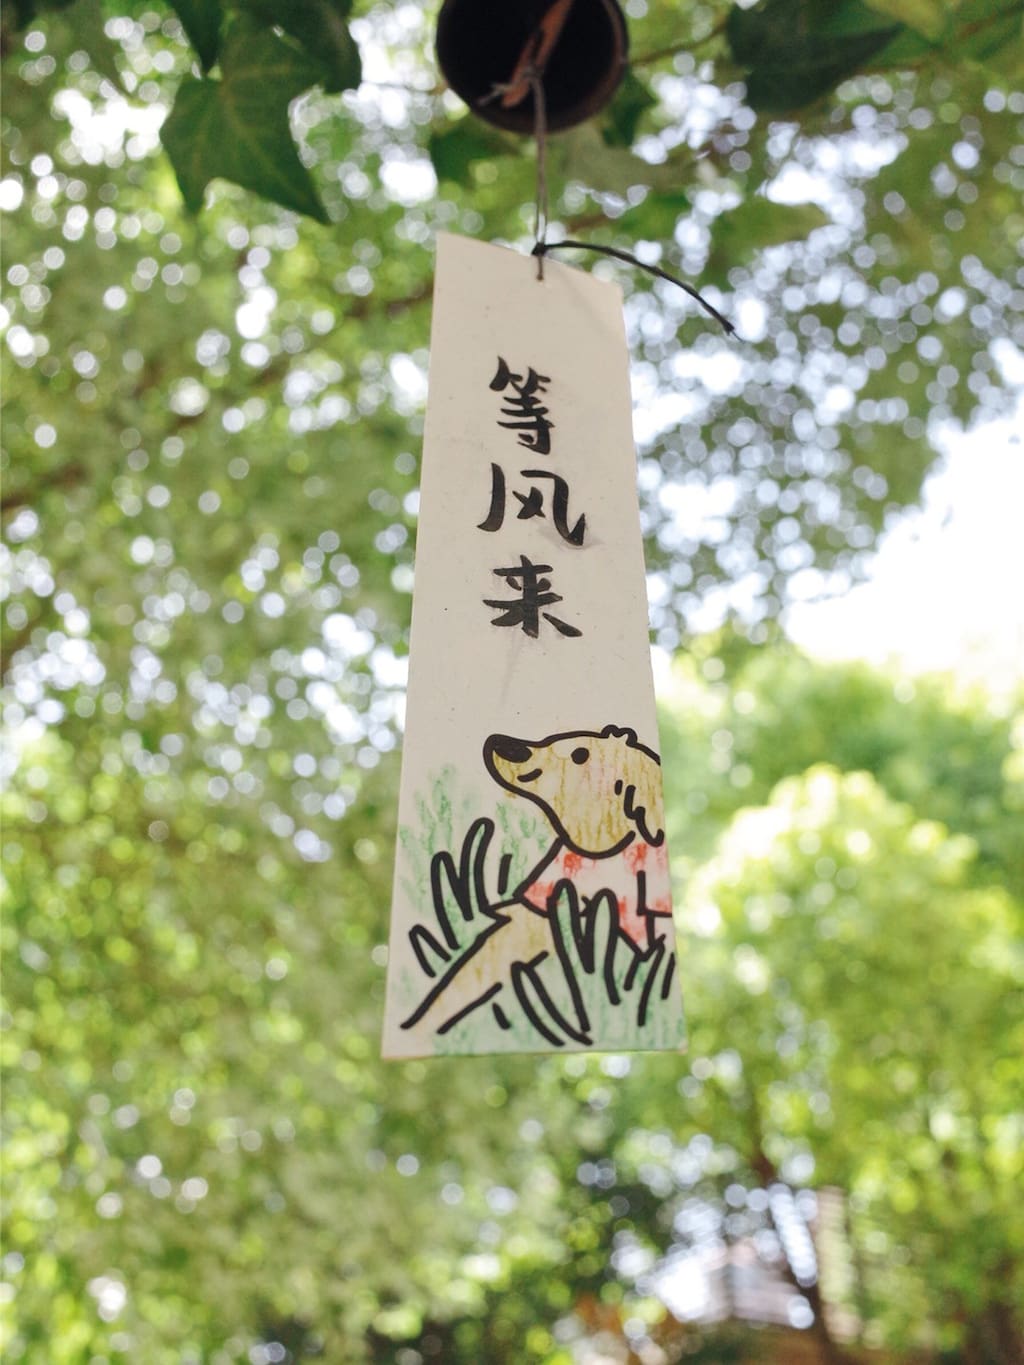 等风来